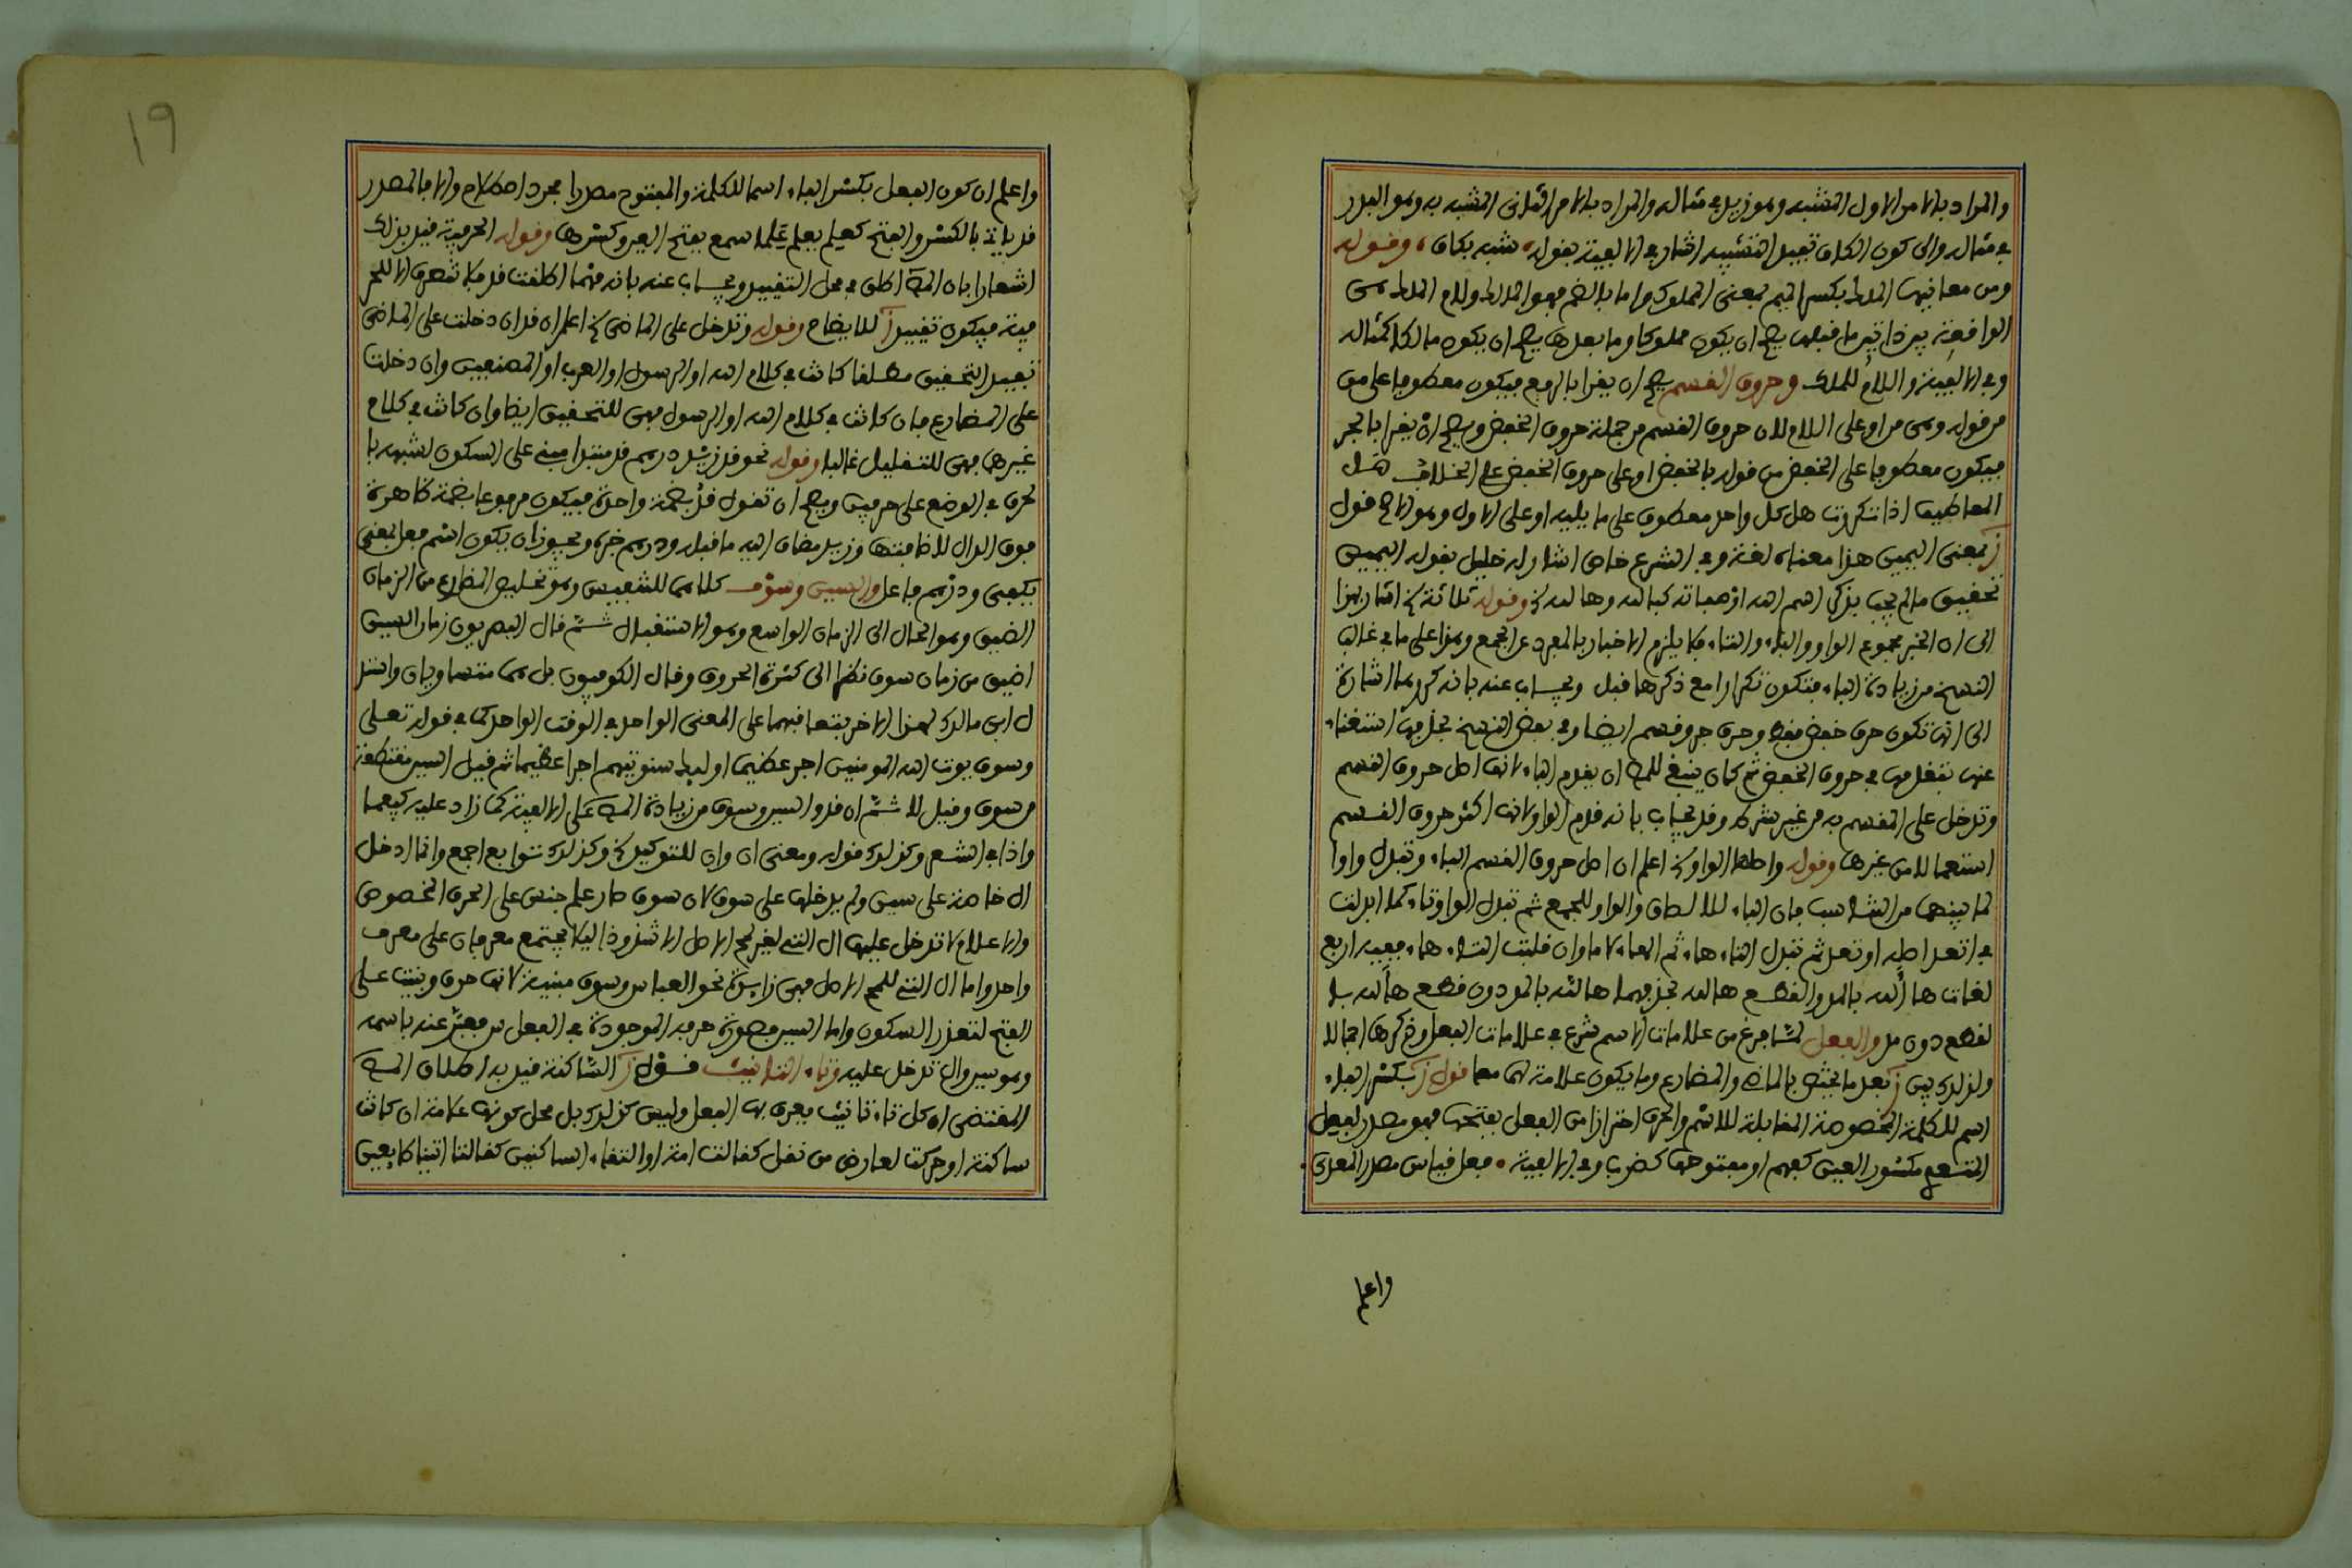 والمراد بالامر الاول المشبه وهو زيد في مثاله والمراد بالامر الثاني المشبه به وهو البدر
في مثاله والى كون الكاف تفيد التشبيه اشار في الالفية بقوله شبه بكاف، وقوله
ومن معانيها الملك بكسر الميم بمعنى المملوك واما بالضم فهو الملك ولام الملك هي
الواقعة بين ذاتين ما قبلها يصح ان يكون مملوكا وما بعدها يصح ان يكون مالكا كمثاله
وفي الالفية واللام للملك وحروف القسم يصح ان يقرا بالرفع فيكون معطوفا على من
من قوله وهي من او على اللام لان حروف القسم من جملة حروف الخفض ويصح ان يقرا بالجر
فيكون معطوفا على الخفض من قوله بالخفض او على حروف الخفض على الخلاف هل
المعاطيف اذا تكررت هل كل واحد معطوف على ما يليه او على الاول وهو الاصح قول
ز بمعنى اليمين هذا معناه لغة وفي الشرع خاص اشار له خليل بقوله اليمين
تحقيق ما لم يجب بذكر اسم الله او صفاته كبالله وهالله خ وقوله ثلاثة خ اشار بهذا
الى ان الخبر مجموع الواو والباء والتاء فلا يلزم الاخبار بالمفرد عن الجمع وهذا على ما في غالب
النسخ من زيادة الباء فتكون تكرارا مع ذكرها قبل ويجاب عنه بانه كررها اشارة
الى انها تكون حرف خفض فقط وحرف جر وقسم ايضا وفي بعض النسخ بحذفها استغناء
عنها بتقدمها في حروف الخفض ثم كان ينبغي للمص ان يقدم الباء لانها اصل حروف القسم
وتدخل على المقسم به من غير شرط وقد يجاب بانه قدم الواو لانها اكثر حروف القسم
استعمالا من غيرها وقوله واصلها الواو خ اعلم ان اصل حروف القسم الباء وتبدل واوا
لما بينهما من التناسب فان الباء للالصاق والواو للجمع ثم تبدل الواو تاء كما ابدلت
في اتعد اصله اوتعد ثم تبدل التاء هاء ثم الهاء لاما وان قلبت التاء هاء ففيه اربع
لغات ها ألله بالمد والقطع هالله بحذفهما هاالله بالمد دون قطع هألله بلا
لقطع دون مد والفعل لما فرغ من علامات الاسم شرع في علامات الفعل وذكرها اجمالا
ولذلك بين ز بعد ما يختص بالماضي والمضارع وما يكون علامة لهما معا قول ز بكسر الفاء
اسم للكلمة المخصوصة المقابلة للاسم والحرف احترازا من الفعل بفتحها فهو مصدر لفعل
المتسع مكسور العين كفهم او مفتوحها كضرب وفي الالفية • فعل قياس مصدر المعدى •
واعلم
19
واعلم ان كون الفعل بكسر الفاء اسما للكلمة والمفتوح مصدرا مجرد اصطلاح والا فالمصدر
قد ياتي بالكسر والفتح كعلم يعلم علما سمع بفتح العين وكسرها وقوله الحرفية قيل بذلك
اشعارا بان المص اطلق في محل التقييد ويجاب عنه بانه مهما اطلقت قد فلا تنصرف الا للحر
فية فيكون تقييد ز للايضاح وقوله وتدخل على الماضي خ اعلم ان قد ان دخلت على الماضي
تفيد التحقيق مطلقا كانت في كلام الله او الرسول او العرب او المصنفين وان دخلت
على المضارع فان كانت في كلام الله او الرسول فهي للتحقيق ايضا وان كانت في كلام
غيرهما فهي للتقليل غالبا وقوله نحو قد زيد درهم قد مبتدا مبني على السكون لشبهه با
لحرف في الوضع على حرفين ويصح ان تقول قد بضمة واحدة فيكون مرفوعا بضمة ظاهرة
فوق الدال لاضافتها وزيد مضاف اليه ما قبله ودرهم خبره ويجوز ان يكون اسم فعل بمعنى
يكفي ودرهم فاعل والسين وسوف كلاهما للتنفيس وهو تخليص المضارع من الزمان
الضيق وهو الحال الى الزمان الواسع وهو الاستقبال ثم قال البصريون زمان السين
اضيق من زمان سوف نظرا الى كثرة الحروف وقال الكوفيون بل هما متساويان واستد
ل ابن مالك لهذا الاخر بتعاقبهما على المعنى الواحد في الوقت الواحد كما في قوله تعلى
وسوف يوت الله المومنين اجر عظيما اولئك سنوتيهم اجرا عظيما ثم قيل السين مقتطعة
من سوف وقيل لا ثم ان قد والسين وسوف من زيادة المص على الالفية كما زاد عليه كيفما
واذا في الشعر وكذلك قوله ومعنى ان وان للتوكيد خ وكذلك توابع اجمع وانما ادخل
ال خاصة على سين ولم يدخلها على سوف لان سوف صار علم جنس على الحرف المخصوص
والاعلام لا تدخل عليها ال التي لغير لمح الاصل الا شذوذا ليلا يجتمع معرفان على معرف
واحد واما ال التي للمح الاصل فهي زايدة نحو العباس وسوف مبنية لانها حرف وبنيت على
الفتح لتعذر السكون واما السين فصورة حرفه الموجودة في الفعل س فعبر عنه باسمه
وهو سين وال تدخل عليه وتاء التانيث قول ز الساكنة قيد به اطلاق المص
المقتضي ان كل تاء تانيث يعرف بها الفعل وليس كذلك بل محل كونها علامة ان كانت
ساكنة او حركت لعارض من نقل كقالت امة او التقاء الساكنين كقالتا اتينا طايعين